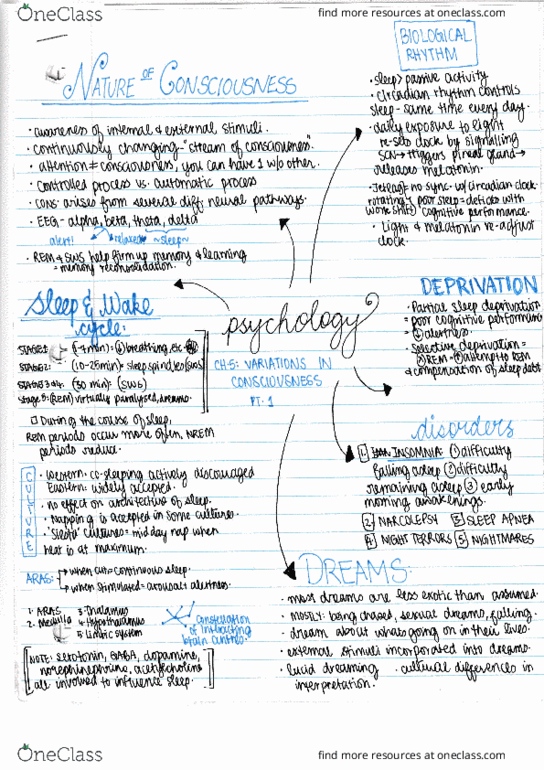 OneClass
find more resources at oneclass.com
NATURE OF CONSCIOUSNESS
• awareness of internal & external stimuli.
• continuously changing - "stream of consciousness".
• attention ≠ consciousness, you can have 1 w/o other.
• controlled process vs. automatic process
• cons arises from several diff neural pathways.
• EEG - alpha, beta, theta, delta
alert! relaxed ~sleep~
• REM & SWS help firm up memory & learning
= memory reconsolidation.
BIOLOGICAL
RHYTHM
• sleep > passive activity
• circadian rhythm controls
sleep - same time every day.
• daily exposure to light
re-sets clock by signalling
SCN → triggers pineal gland →
releases melatonin.
• Jetlag: no sync w/ circadian clock.
rotating & poor sleep = deficits with
work shifts cognitive performance.
• Light & melatonin re-adjust
clock.
psychology
CH-5: VARIATIONS IN
CONSCIOUSNESS
PT. 1
Sleep & Wake
cycle:
STAGE 1: (1-7 min): breathing, etc
STAGE 2: (10-25min) = sleep spindles (SWS)
STAGE 3&4: (30 min): (SWS)
Stage 5: (REM) virtually paralysed, dreams.
During the course of sleep,
REM periods occur more often, NREM
periods reduce.
CULTURE
• Western: co-sleeping actively discouraged
Eastern: widely accepted.
• no effect on architecture of sleep.
• Napping is accepted in some cultures.
• "Siesta" cultures = midday nap when
heat is at maximum.
ARAS: → when cut = continuous sleep.
→ when stimulated = arousal & alertness.
1. ARAS 3. Thalamus
2. Medulla 4. Hypothalamus
5. limbic system
Constellation
of interacting
brain centres.
NOTE: serotonin, GABA, dopamine,
norephinephrine, acetylcholine
all involved to influence sleep.
DEPRIVATION
• Partial sleep deprivation
= poor cognitive performance
= alertness.
• Selective deprivation =
REM = attempt to REM
& compensation of sleep debt
disorders
1 INSOMNIA: ① difficulty
falling asleep ② difficulty
remaining asleep ③ early
morning awakenings.
2 NARCOLEPSY 3 SLEEP APNEA
4 NIGHT TERRORS 5 NIGHTMARES
DREAMS:
• most dreams are less exotic than assumed.
• MOSTLY: being chased, sexual dreams, falling.
• dream about whats going on in their lives.
• external stimuli incorporated into dreams.
• lucid dreaming • cultural differences in
interpretation.
OneClass
find more resources at oneclass.com